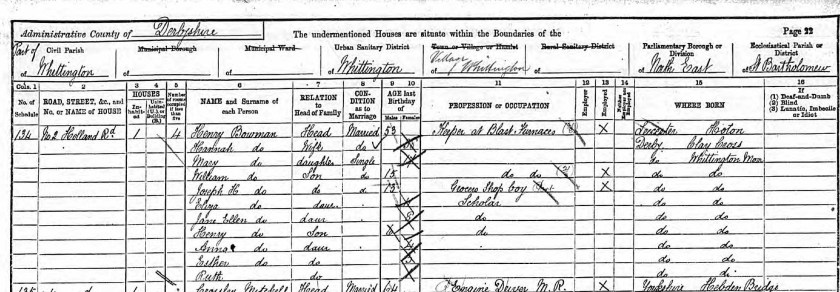 Administrative County of Derbyshire The undermentioned Houses are situate within the Boundaries of the Page 22
Part of Civil Parish Municipal Borough Municipal Ward Urban Sanitary District Town or Village or Hamlet Rural Sanitary District Parliamentary Borough or Division Ecclesiastical Parish or District
of Whittington of of of Whittington Village of Whittington of of North East of St Bartholomew
Cols. 1 2 3 4 5 6 7 8 9 10 11 12 13 14 15 16
No. of Schedule ROAD, STREET, &c., and No. or NAME of HOUSE HOUSES Inhabited Uninhabited (U.) or Building (B.) Number of rooms occupied if less than five NAME and Surname of each Person RELATION to Head of Family CONDITION as to Marriage AGE last Birthday of Males Females PROFESSION or OCCUPATION Employer Employed Neither Employer nor Employed WHERE BORN If (1) Deaf-and-Dumb (2) Blind (3) Lunatic, Imbecile or Idiot
134 No 2 Holland Rd 1 4 Henry Bowman Head Married 53 Keeper at Blast Furnaces X Leicester Hoton
Hannah do Wife do Derby Clay Cross
Mary do daughter Single do Whittington Moor
William do Son do 15 do do X do do
Joseph H do do do 13 Grocers Shop boy X do do
Eliza do daur Scholar do do
Jane Ellen do daur 8 do do do
Henry do Son do do do
Anna do daur do do
Esther do do do do
Ruth do do do
135 1 Mitchell Head Married 64 Engine Driver M. R. X Yorkshire Hebden Bridge